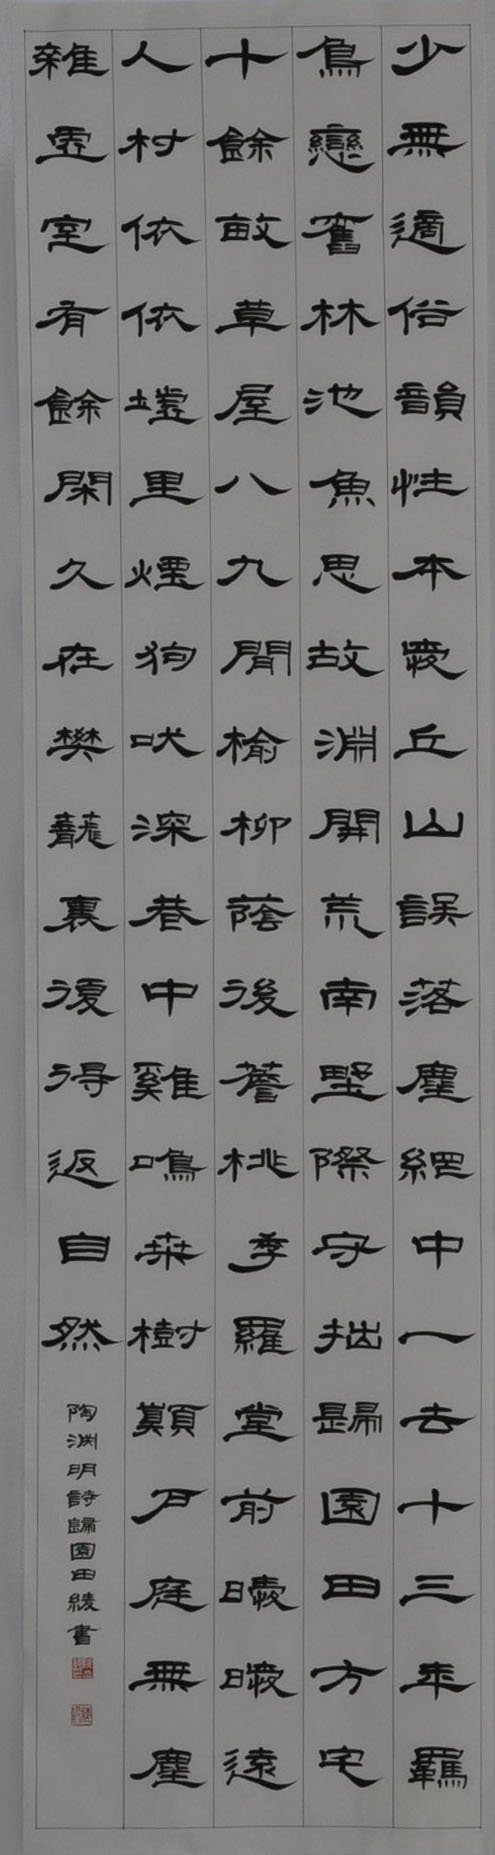 少無適俗韻性本愛丘山誤落塵網中一去十三年羈
鳥戀舊林池魚思故淵開荒南野際守拙歸園田方宅
十餘畝草屋八九間榆柳蔭後簷桃李羅堂前曖曖遠
人村依依墟里煙狗吠深巷中雞鳴桑樹顛戶庭無塵
雜虛室有餘閑久在樊籠裏復得返自然
陶渊明詩歸園田綾書